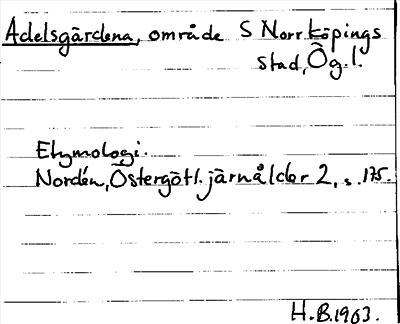 Adelsgärdena, område S Norrköpings
stad, Ög.l.
Etymologi.
Nordén, Östergötl. järnålder 2, s. 175.
H.B.1963.